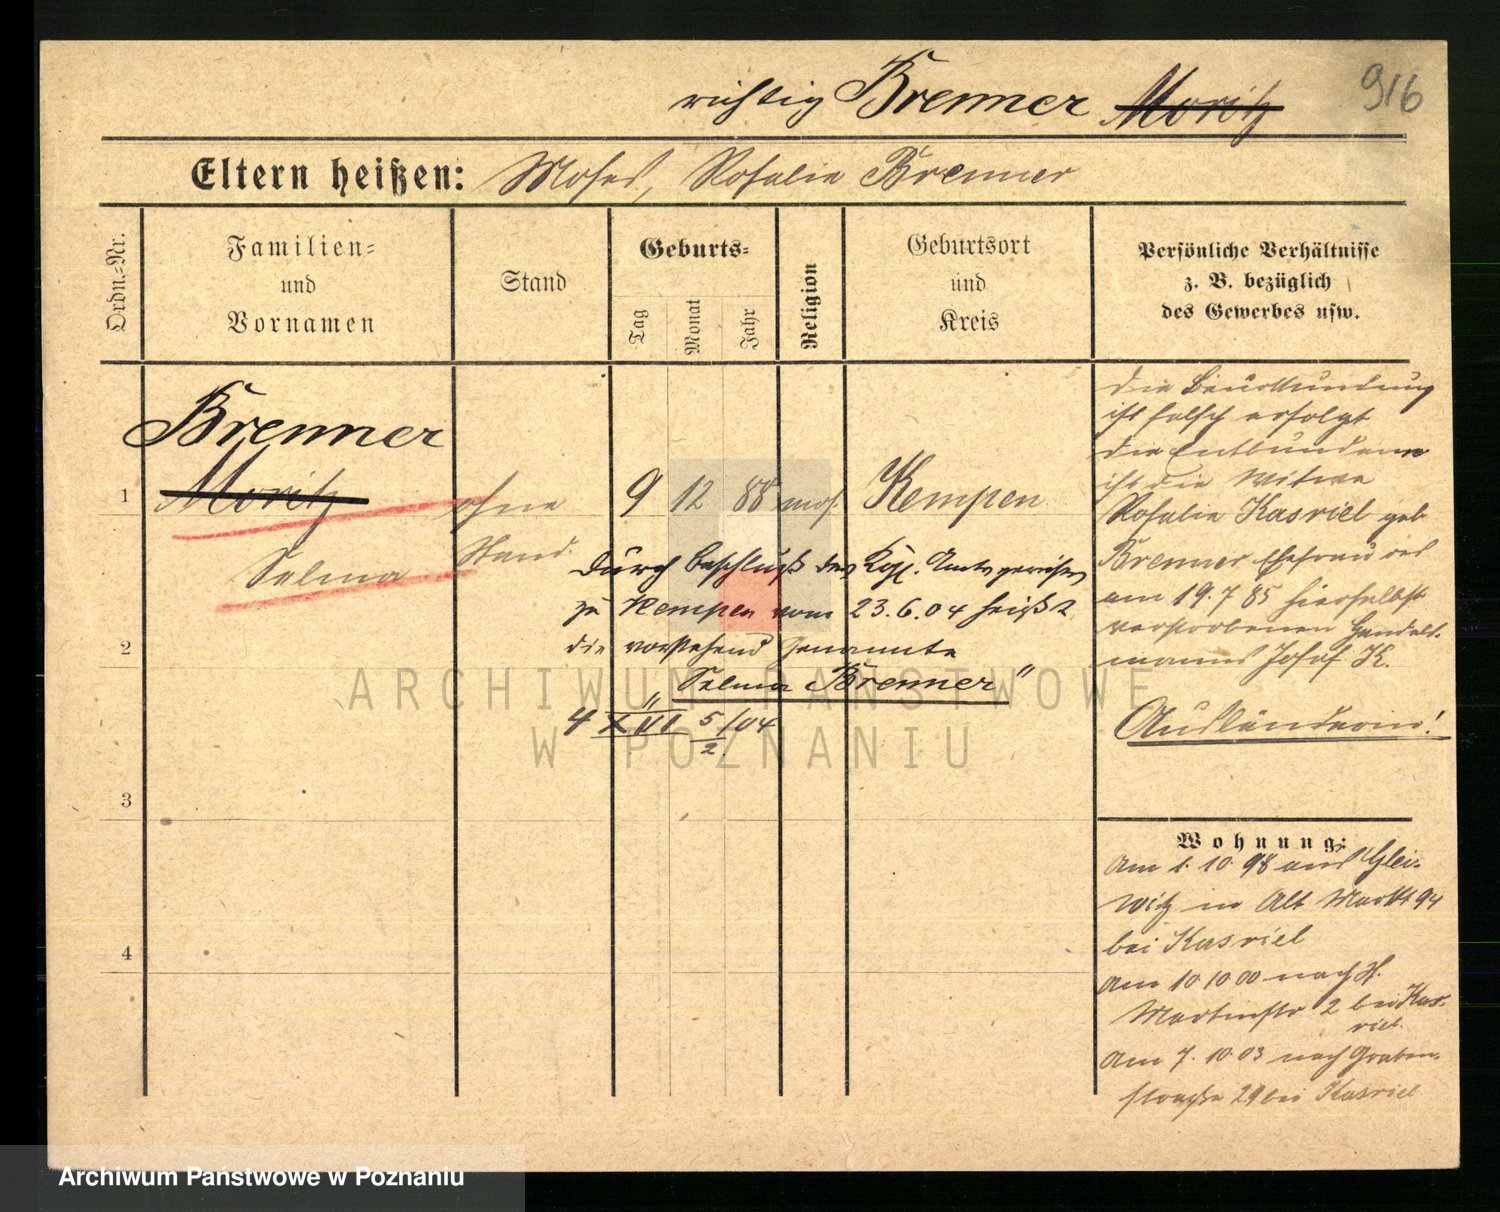 richtig Brenner Moritz 916
Eltern heißen: Moses, Rosalie Brenner
Ordn.-Nr.
Familien-
und
Vornamen
Stand
Geburts-
Tag
Monat
Jahr
Religion
Geburtsort
und
Kreis
Persönliche Verhältnisse
z. B. bezüglich
des Gewerbes usw.
Brenner
1 Moritz ohne 9 12 88 mos. Kempen
Selma Stand.
Durch Beschluß des Kgl. Amtsgerichts
zu Kempen vom 23.6.04 heißt
die vorstehend Genannte
„Selma Brenner"
4 XVI 5/04
2.
2
3
4
die Beurkundung
ist falsch erfolgt
die Entbundene
ist die Witwe
Rosalie Kasriel geb
Brenner Ehefrau des
am 19.7.85 hierselbst
verstorbenen Handels-
manns Josef K.
Ausländerin!
Wohnung:
Am 1. 10. 98 aus Glei-
witz in Alt Markt 94
bei Kasriel
Am 10 10 00 nach St.
Martinstr 2 bei Kas-
riel.
Am 7. 10 03 nach Graben-
straße 29 bei Kasriel
ARCHIWUM PAŃSTWOWE
W POZNANIU
Archiwum Państwowe w Poznaniu